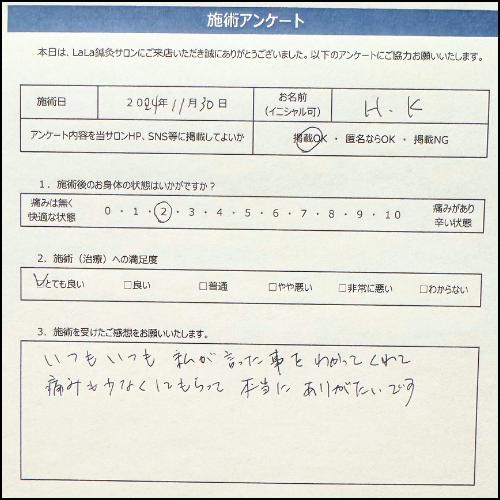 施術アンケート
本日は、LaLa鍼灸サロンにご来店いただき誠にありがとうございました。以下のアンケートにご協力お願いいたします。
施術日 2024年11月30日 お名前(イニシャル可) H.K
アンケート内容を当サロンHP、SNS等に掲載してよいか 掲載OK ・ 匿名ならOK ・ 掲載NG
1. 施術後のお身体の状態はいかがですか？
痛みは無く快適な状態 0 ・ 1 ・ 2 ・ 3 ・ 4 ・ 5 ・ 6 ・ 7 ・ 8 ・ 9 ・ 10 痛みがあり辛い状態
2. 施術（治療）への満足度
☑とても良い □良い □普通 □やや悪い □非常に悪い □わからない
3. 施術を受けたご感想をお願いいたします。
いつもいつも 私が言った事をわかってくれて
痛みも少なくしてもらって 本当に ありがたいです